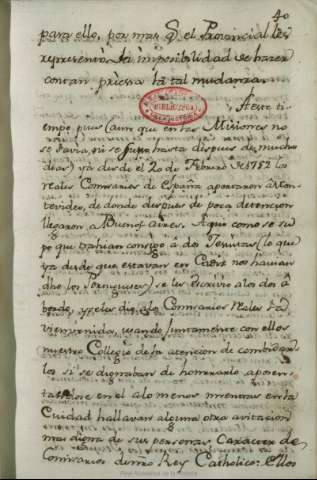 40
para ello, por mas q̃ el Provincial les
representò la imposibilidad de hazer
con tan priessa la tal mudanza.
BIBLIOTECA
A este ti-
empo pues (aunque en las Misiones no
se savia, ni se supo hasta despues de muchos
dias) ya desde el 20 de Febrero de 1752 los
reales Comisarios de España aportaron a Mon-
tevideo, de donde despues de poca detencion
llegaron a Buenos Ayres. Aqui como se su-
po que trahian consigo a dos Jesuitas (lo que
ya desde que estavan en Cadiz nos havian
dho los Portugueses) se les escrivio a los dos a
bordo, y se les dio a los Comisarios reales la
vienvenida, usando juntamente con ellos
nuestro Collegio de la atencion de combidar-
los si se dignaban de honrrarlo aposen-
tandose en el alo menos mientras en la
Ciudad hallavan alguna otra avitacion
mas digna de sus personas y caracter de
Comisarios de nro Rey Catholico. Ellos